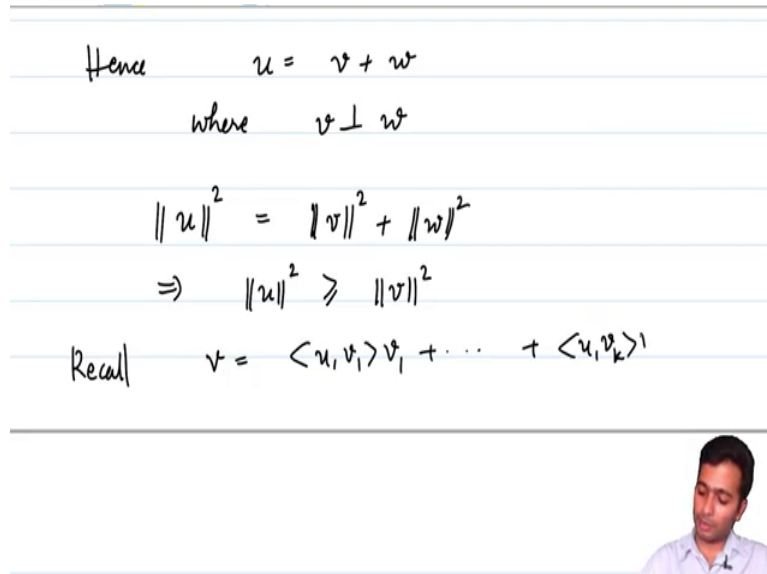 Hence u = v + w
where v ⊥ w
||u||² = ||v||² + ||w||²
⇒ ||u||² ≥ ||v||²
Recall v = <u, v₁> v₁ + ⋯ + <u, vₖ>